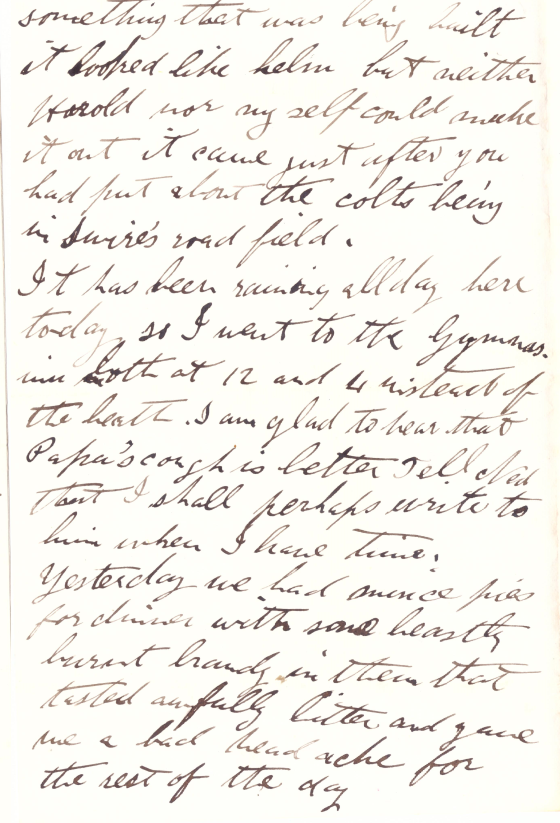 something that was being built
it looked like helm but neither
Harold nor my self could make
it out it came just after you
had put about the colts being
in Swire's road field.
It has been raining all day here
today so I went to the Gymnas-
ium both at 12 and 4 instead of
the heath. I am glad to hear that
Papa's cough is better Tell Ned
that I shall perhaps write to
him when I have time.
Yesterday we had mince pies
for dinner with some beastly
burnt brandy in them that
tasted awfully bitter and gave
me a bad head ache for
the rest of the day